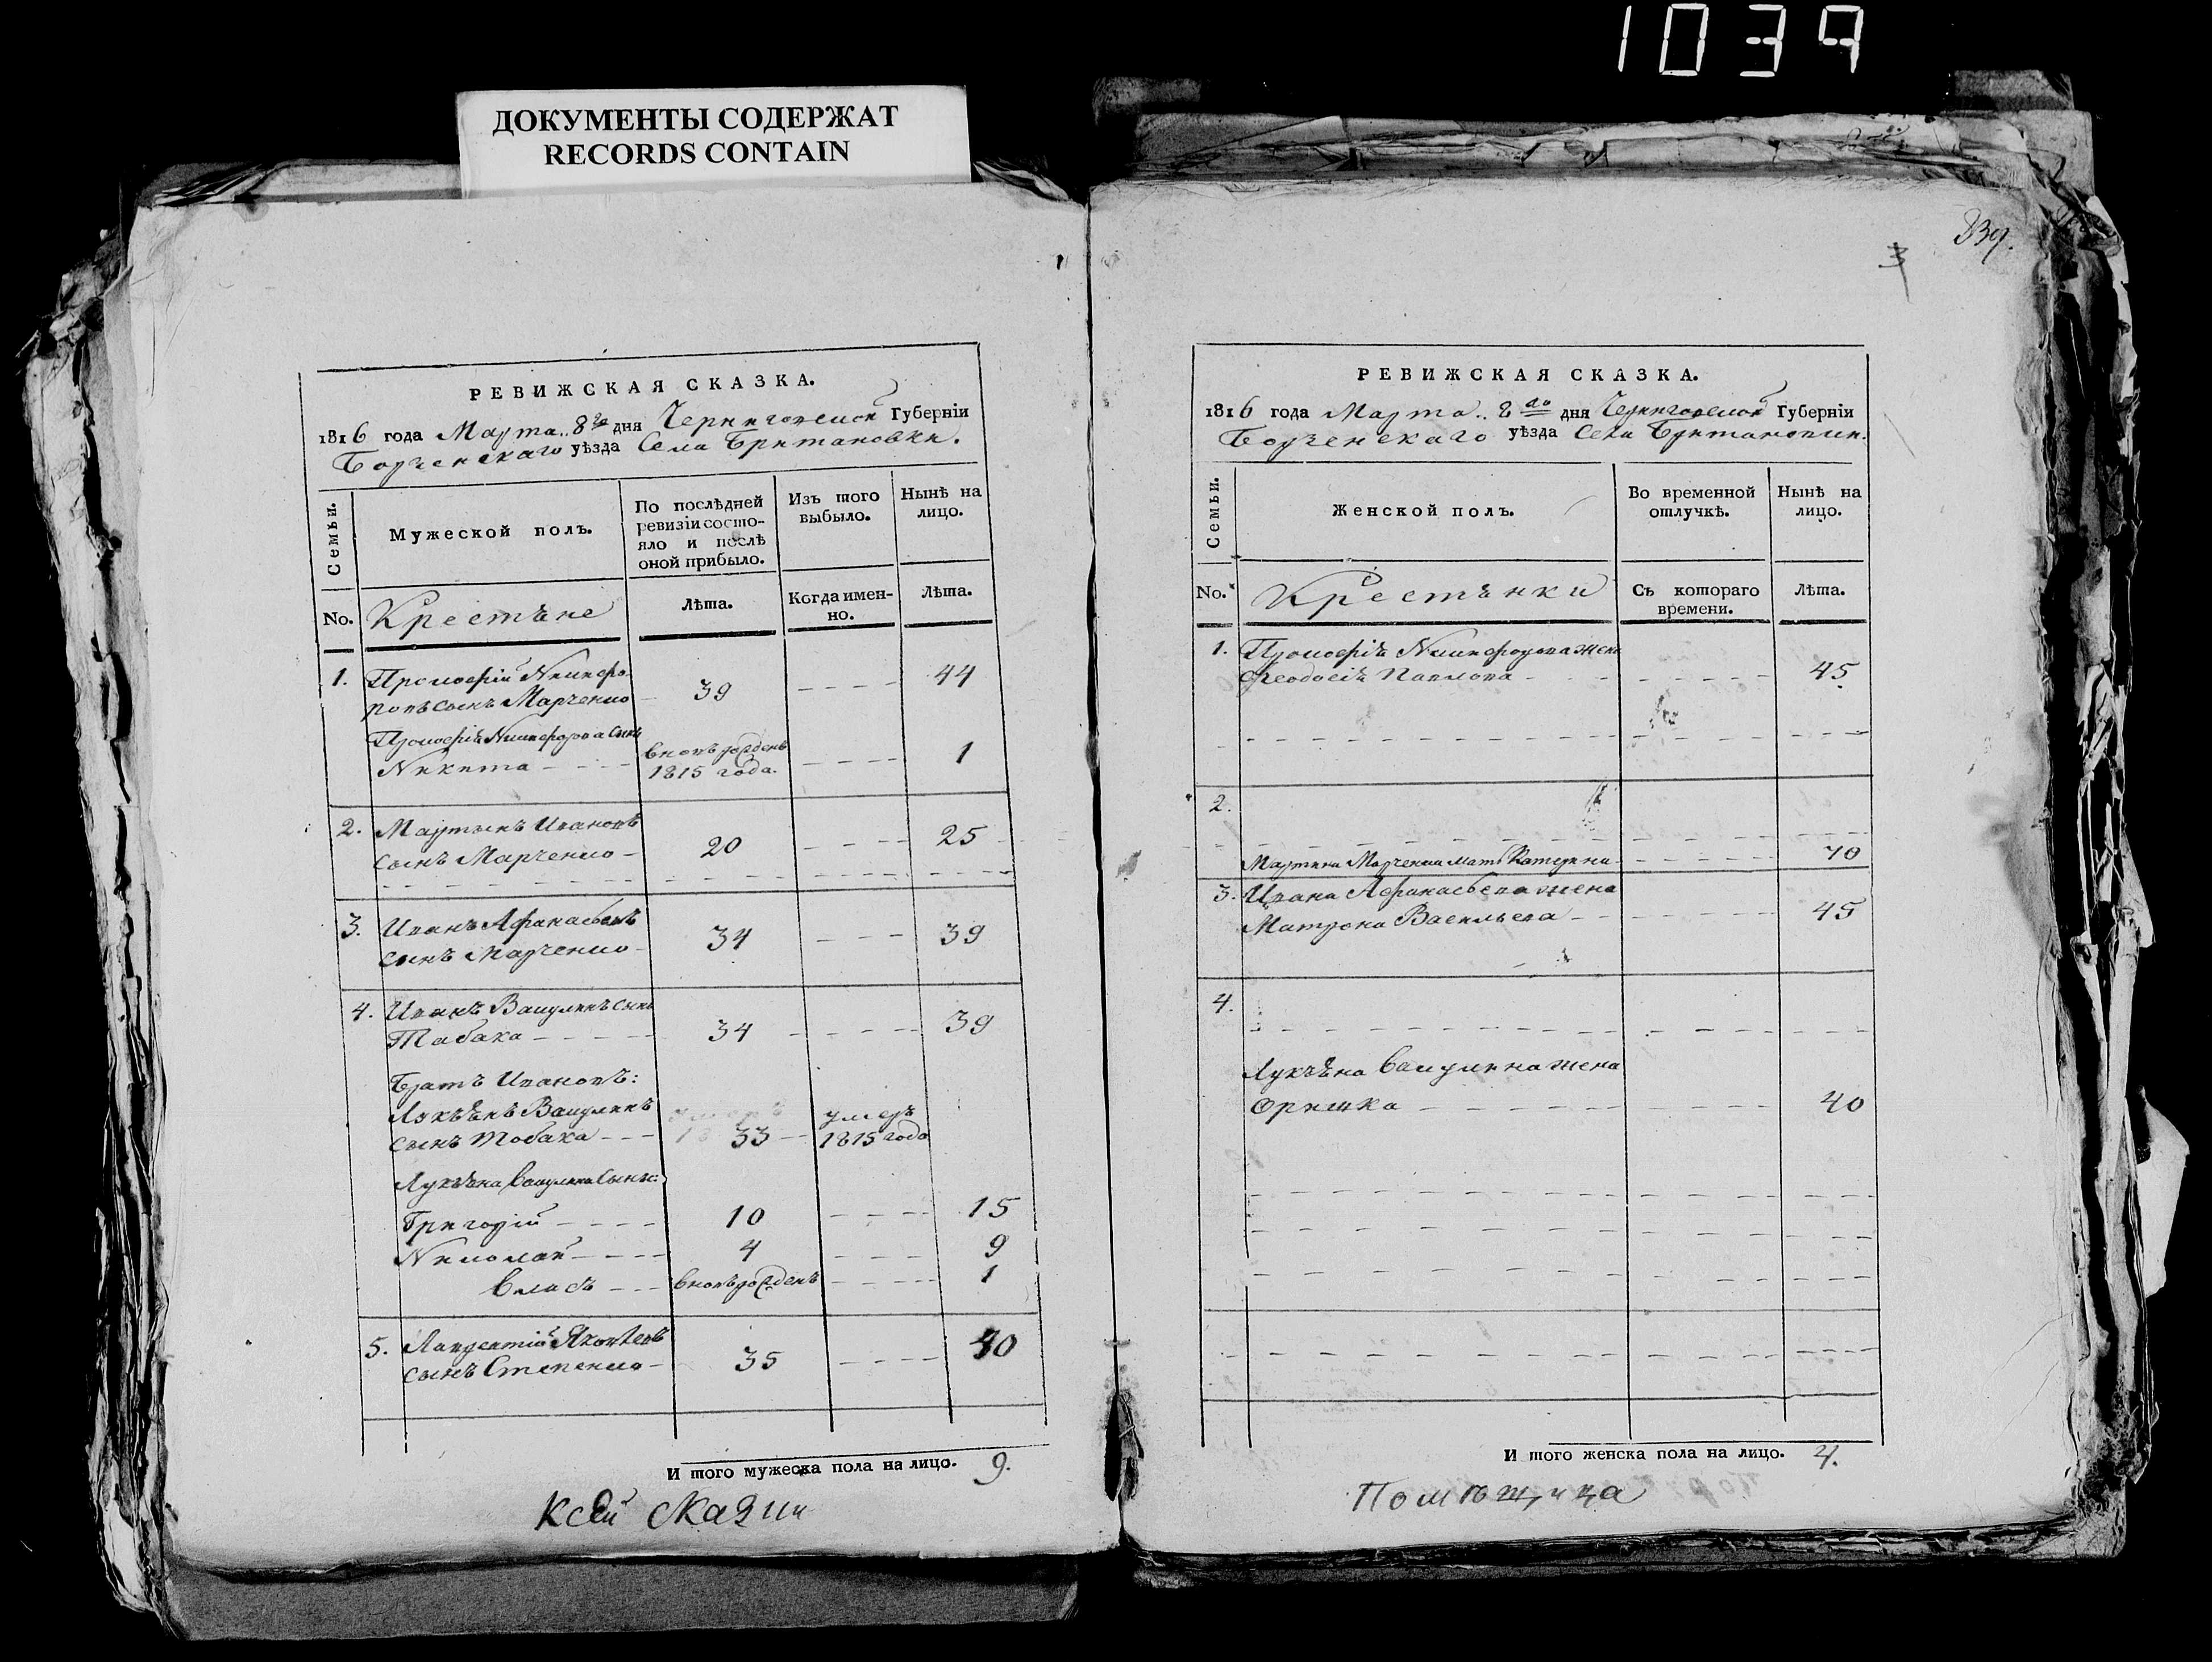 1039
ДОКУМЕНТЫ СОДЕРЖАТ
RECORDS CONTAIN
РЕВИЖСКАЯ СКАЗКА.
1816 года Марта 8го дня Черниговской Губерніи
Борзенскаго уѣзда Села Британовки.
Семьи.
Мужеской полъ.
По послѣдней
ревизіи состо-
яло и послѣ
оной прибыло.
Изъ того
выбыло.
Нынѣ на
лицо.
No.
Крестьяне
Лѣта.
Когда имен-
но.
Лѣта.
1. Прокофій Никифо-
ровъ сынъ Марченко 39 44
Прокофія Никифорова сынъ
Никита вновь рожденъ 1815 года. 1
2. Мартынъ Ивановъ
сынъ Марченко 20 25
3. Иванъ Афанасьевъ
сынъ Марченко 34 39
4. Иванъ сынъ
Табака 34 39
Братъ Ивановъ:
Лукъянъ
сынъ Табака 33 умеръ 1815 года
Лукъяна сыны:
Григорій 10 15
Николай 4 9
Власъ вновь рожденъ 1
5. Лаврентій Яковлевъ
сынъ Степенко 35 40
И того мужеска пола на лицо. 9.
Ксей Сказки
239.
3
РЕВИЖСКАЯ СКАЗКА.
1816 года Марта 8го дня Черниговской Губерніи
Борзенскаго уѣзда Села Британовки.
Семьи.
Женской полъ.
Во временной
отлучкѣ.
Нынѣ на
лицо.
No.
Крестьянки
Съ котораго
времени.
Лѣта.
1. Прокофія Никифорова жена
Феодосія Павлова 45
2.
Мартина Марченка мать Катерина 70
3. Ивана Афанасьева жена
Матрона Васильева 45
4.
Лукъяна жена
Оришка 40
И того женска пола на лицо. 4.
Помѣщица